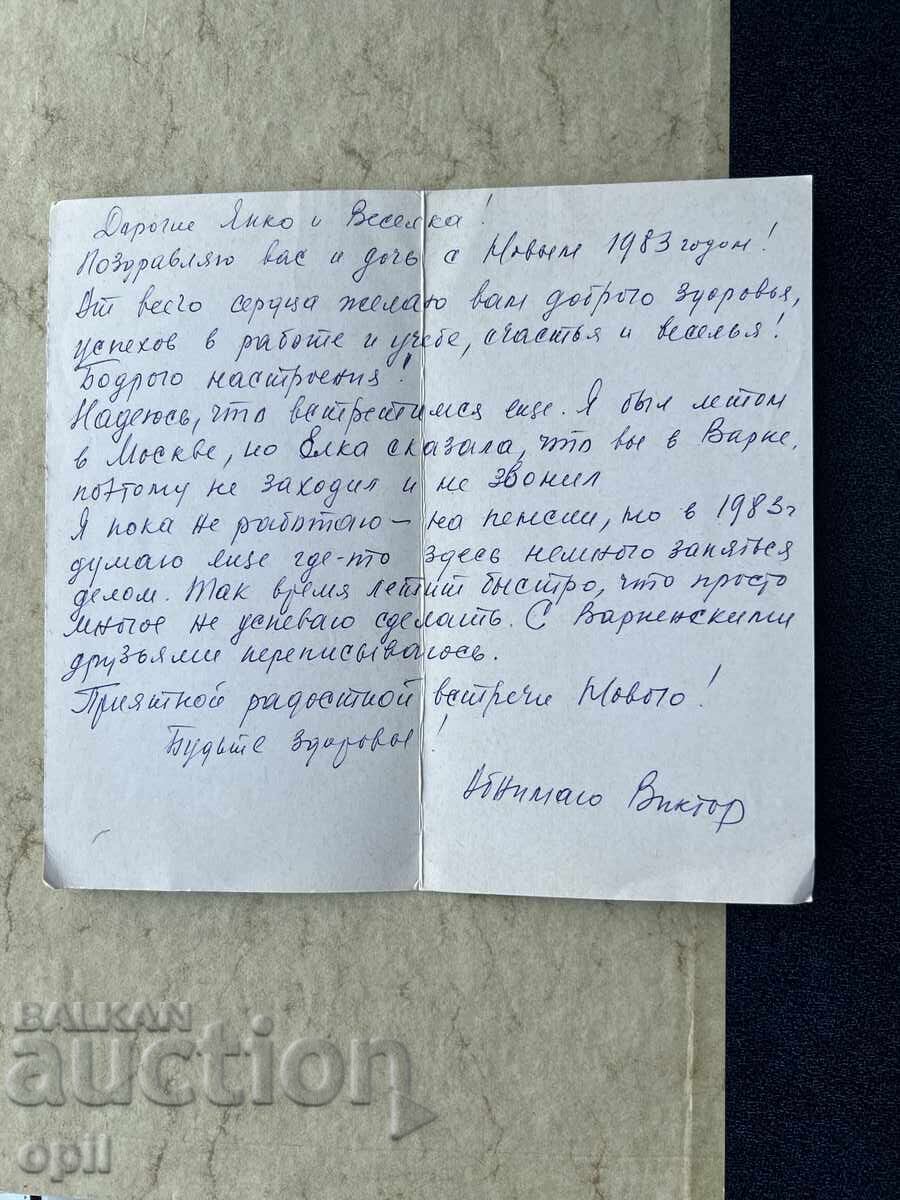 Дарогие Янко и Веселка!
Поздравляю вас и дочь с Новым 1983 годом!
От всего сердца желаю вам доброго здоровья,
успехов в работе и учебе, счастья и веселья!
Бодрого настроения!
Надеюсь, что встретимся еще. Я был летом
в Москве, но Елка сказала, что вы в Варне,
поэтому не заходил и не звонил
Я пока не работаю – на пенсии, но в 1983 г
думаю еще где-то здесь немного заняться
делом. Так время летит быстро, что просто
многое не успеваю сделать. С Варненскими
друзьями переписываюсь.
Приятной радостной встречи Нового!
Будьте здоровы!
Обнимаю Виктор
BALKAN
auction
opil